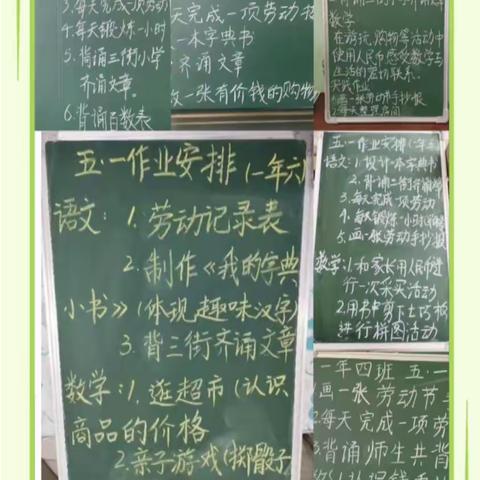 3.每天完成一项劳动
4.每天锻炼一小时
5.背诵三街小学
齐诵文章。
6.背诵百数表
天完成一项劳动
一本字典书
齐诵文章
一张有价钱的购物
数学
在游玩、购物等活动中
使用人民币感受数学与
生活的密切联系.
实践作业
画一张劳动手抄报
每天整理房间
五·一作业安排(一年六
语文:1.劳动记录表
2.制作《我的字典
小书》(体现趣味汉字)
3.背三街齐诵文章
数学:1.逛超市(认识
商品的价格
2.亲子游戏(掷骰子
五·一作业安排(一年
语文:1.设计一本字典书
2.背诵三街齐诵
3.每天完成一项劳动
4.每天锻炼一小时
5.画一张劳动手抄报
数学:1.和家长用人民币进
行一次采买活动
2.用书中剪下七巧板
进行拼图活动
一年四班 五·一
画一张劳动节
每天完成一项劳
背诵师生共背